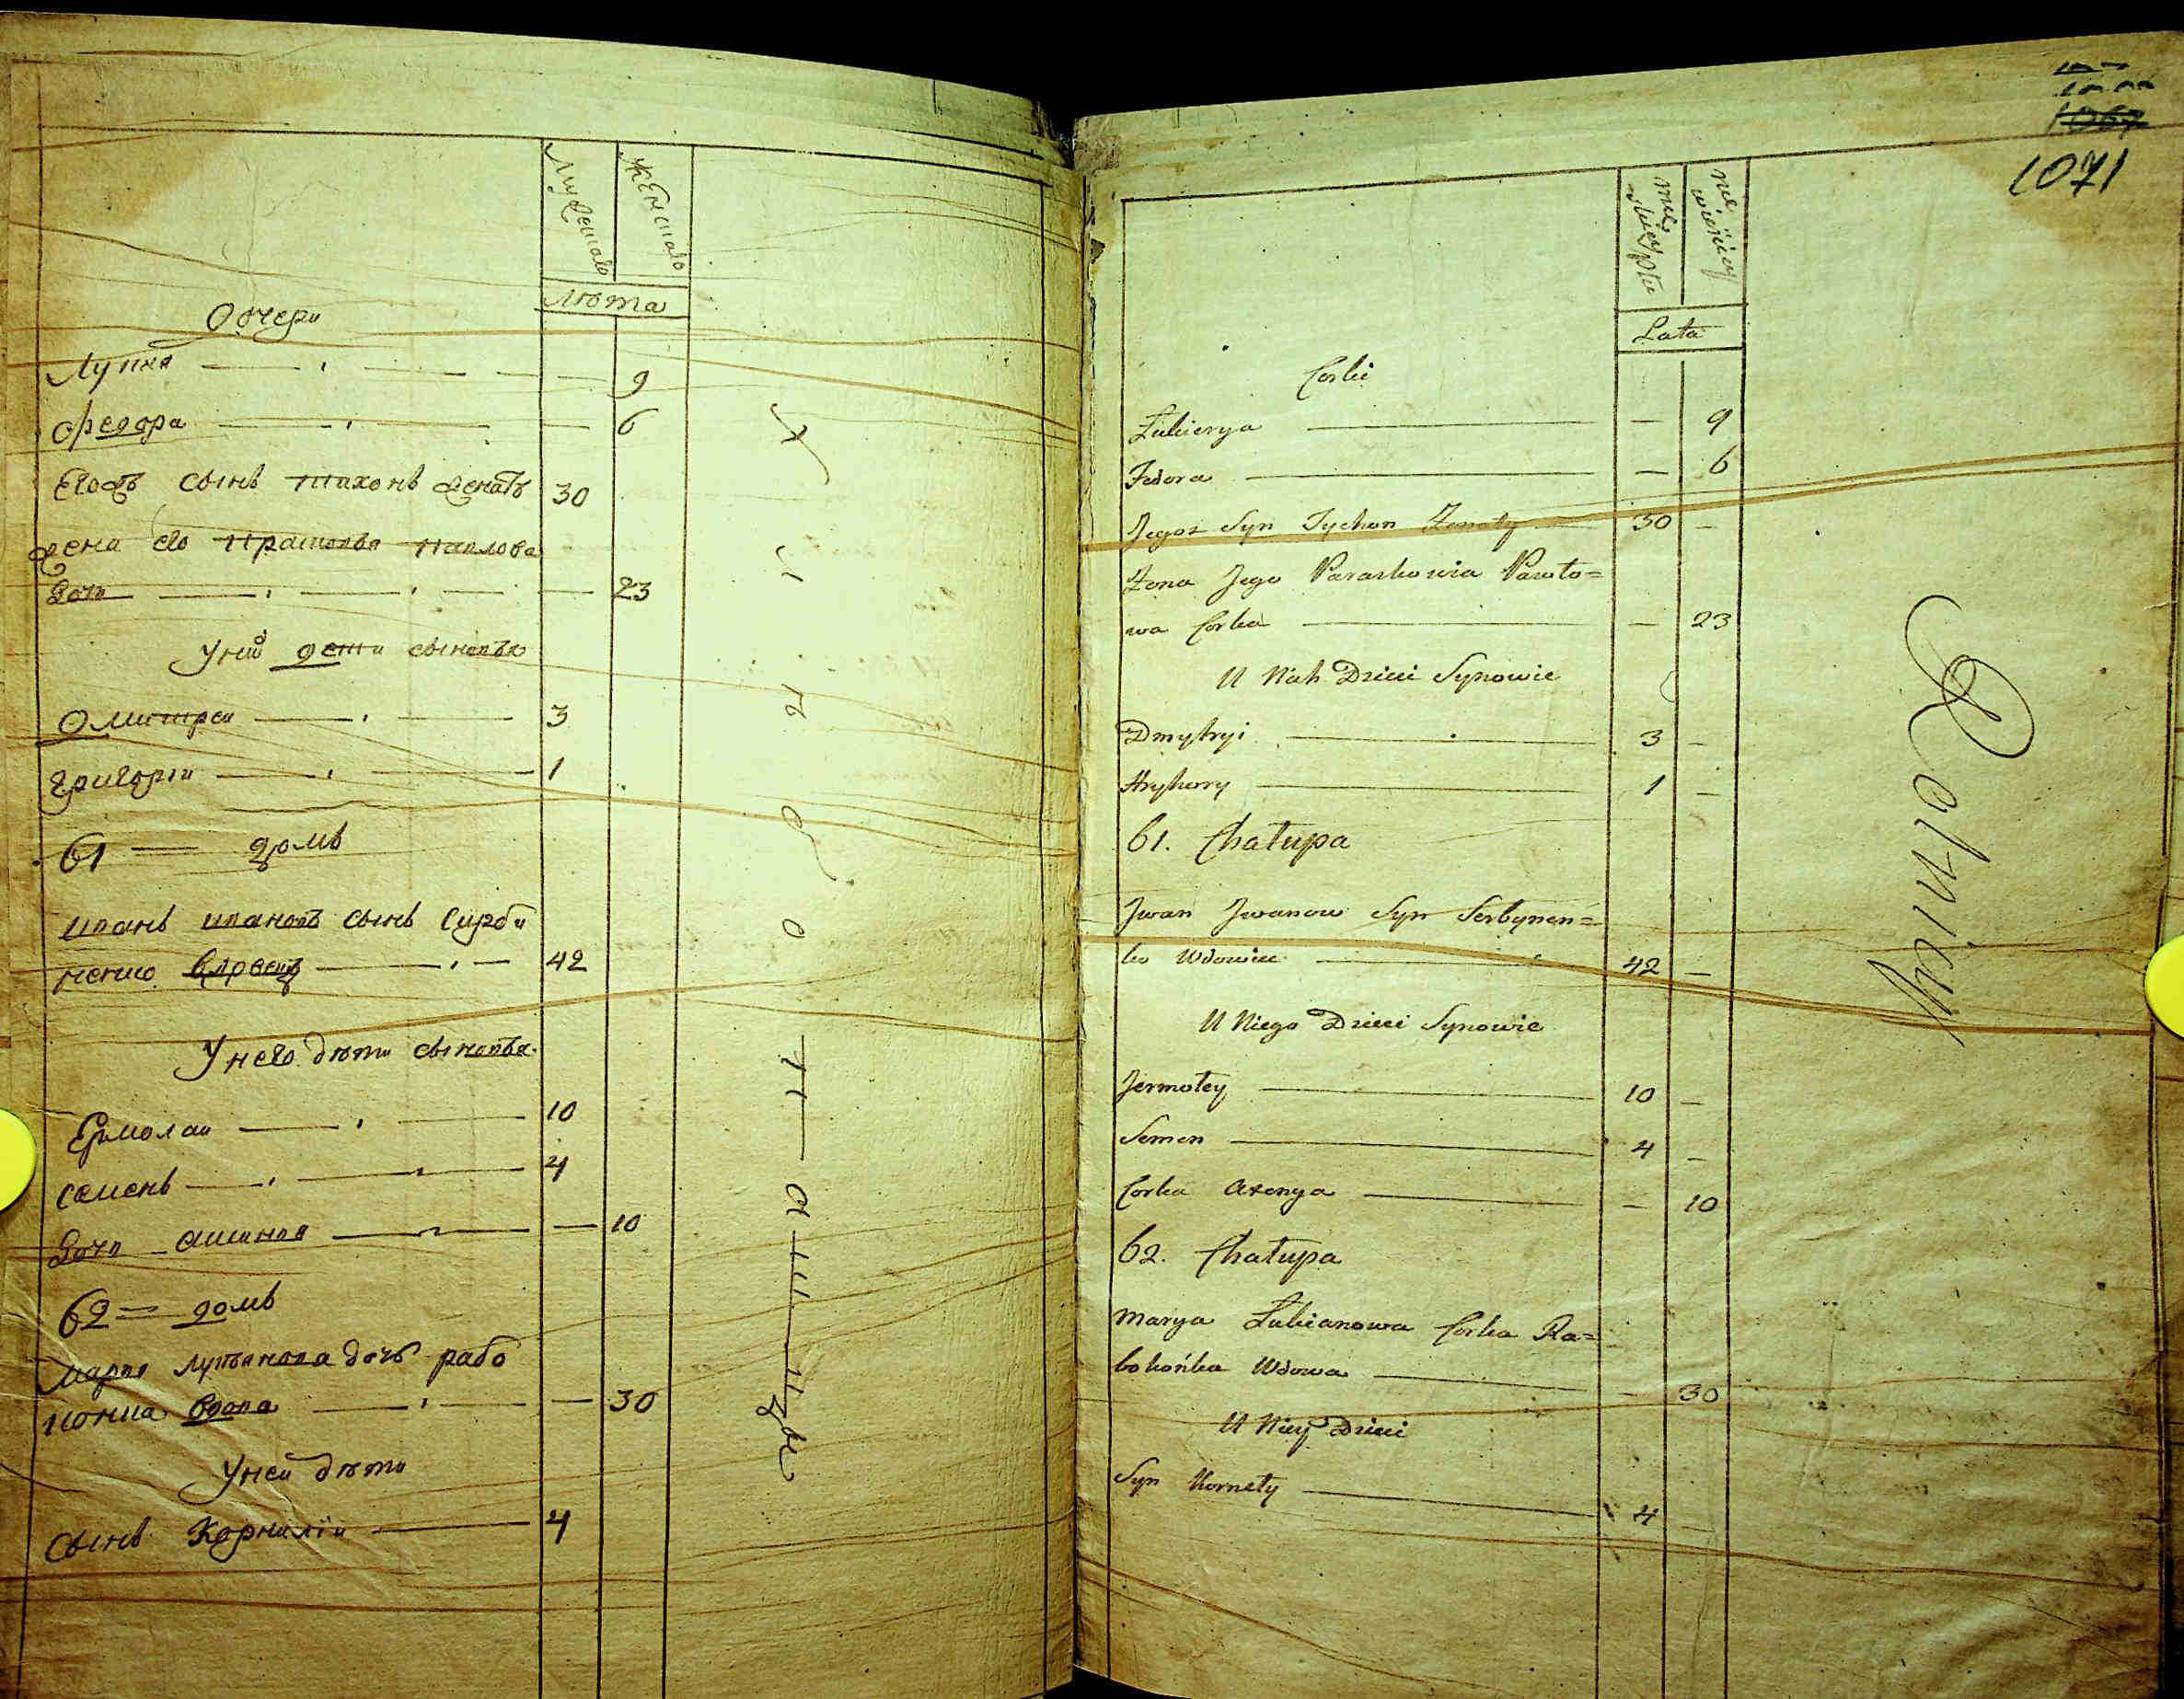 Мужеска
Женска
Лѣта
Дочери
Лукия 9
Федора 6
Егожъ сынъ Тихонъ женатъ 30
Жена его Прасковья Павлова
дочь 23
У них дети сыновья
Дмитрей 3
Григорий 1
61 = домъ
Иванъ Ивановъ сынъ Сирби
ненко вдовецъ 42
У него дѣти сыновья
Ермолай 10
Семенъ 4
Дочь Аксиния 10
62 = домъ
Марья Лукьянова дочь рабо
конка вдова 30
У ней дѣти
Сынъ Корнилій 4
Хлѣбопашцы
1067
1071
męskiey płci
niewieściey
Lata
Corki
Łukierya — 9
Fedora — 6
Jegoż Syn Tychon Żonaty 30 —
Żona Jego Paraskowia Pawło=
wa Corka — 23
U Nich Dzieci Synowie
Dmytryi 3 —
Hryhory 1 —
61. Chałupa
Jwan Jwanow Syn Serbynen=
ko Wdowiec 42 —
U Niego Dzieci Synowie
Jermołey 10 —
Semen 4 —
Corka Axenya — 10
62. Chałupa
Marya Łukianowa Corka Ra=
bokońka Wdowa — 30
U Niey Dzieci
Syn Kornely 4 —
Rolnicy